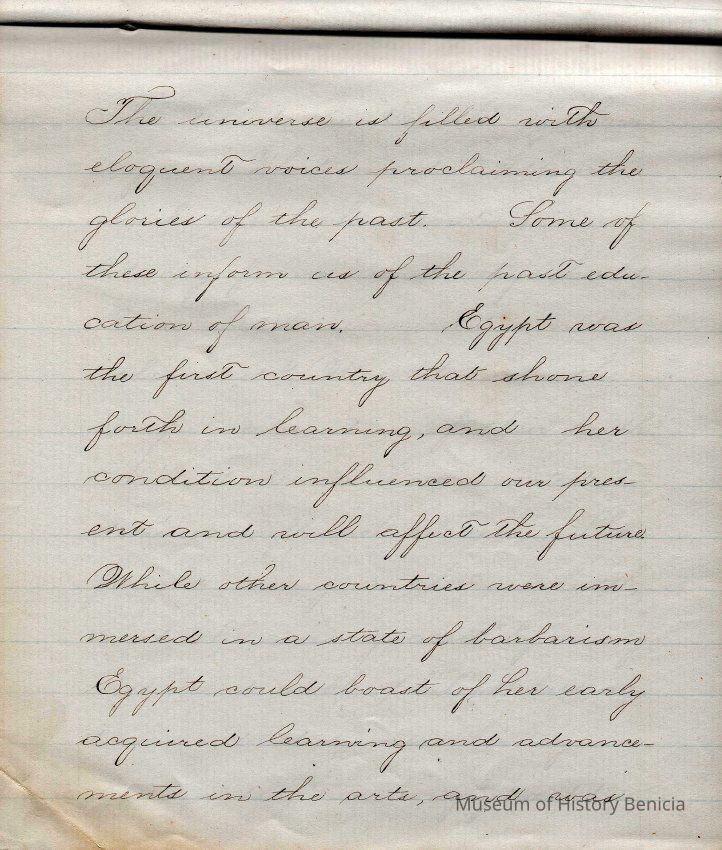 The universe is filled with
eloquent voices proclaiming the
glories of the past. Some of
these inform us of the past edu-
cation of man. Egypt was
the first country that shone
forth in learning, and her
condition influenced our pres-
ent and will affect the future.
While other countries were im-
mersed in a state of barbarism
Egypt could boast of her early
acquired learning and advance-
ments in the arts, and was
Museum of History Benicia